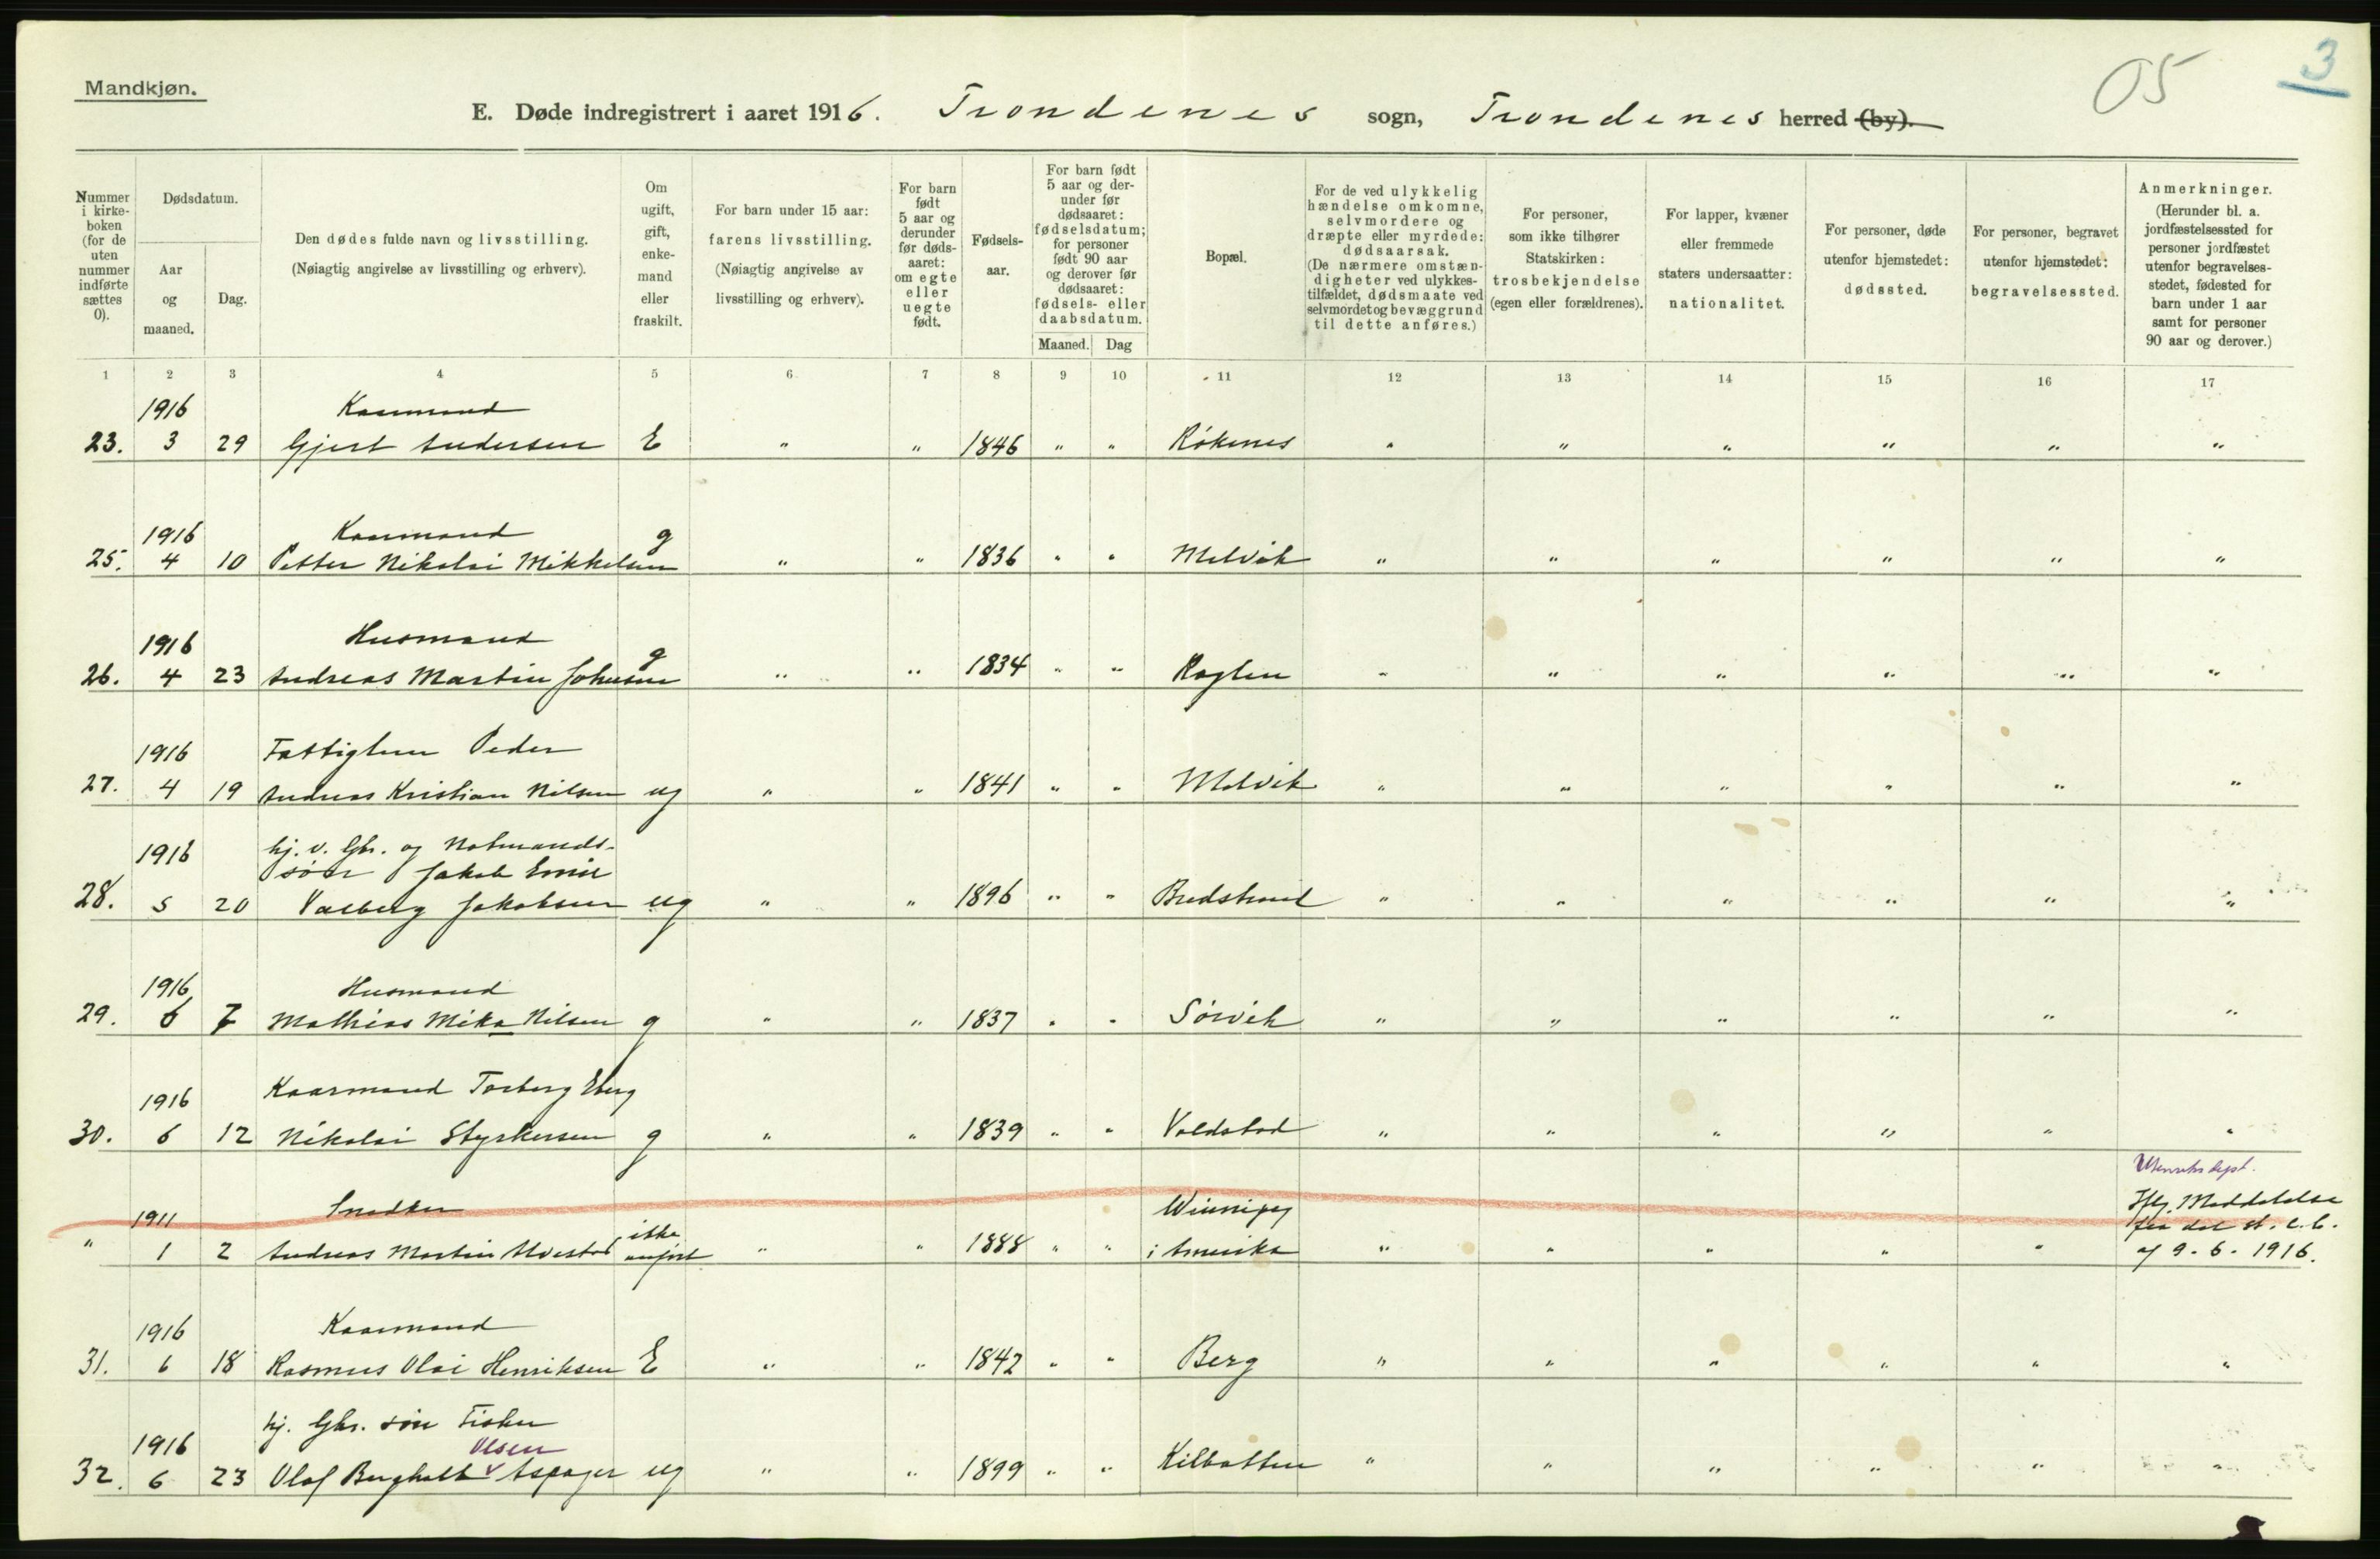 Mandkjøn.
05
3
E. Døde indregistrert i aaret 1916. Trondenes sogn, Trondenes herred (by).
Nummer i kirkeboken (for de uten nummer indførte sættes 0).
Dødsdatum.
Aar og maaned.
Dag.
Den dødes fulde navn og livsstilling. (Nøiagtig angivelse av livsstilling og erhverv).
Om ugift, gift, enkemand eller fraskilt.
For barn under 15 aar: farens livsstilling. (Nøiagtig angivelse av livsstilling og erhverv).
For barn født 5 aar og derunder før dødsaaret: om egte eller uegte født.
Fødselsaar.
For barn født 5 aar og derunder før dødsaaret: fødselsdatum; for personer født 90 aar og derover før dødsaaret: fødsels- eller daabsdatum.
Maaned. Dag
Bopæl.
For de ved ulykkelig hændelse omkomne, selvmordere og dræpte eller myrdede: dødsaarsak. (De nærmere omstændigheter ved ulykkestilfældet, dødsmaate ved selvmordet og bevæggrund til dette anføres.)
For personer, som ikke tilhører Statskirken: trosbekjendelse (egen eller forældrenes).
For lapper, kvæner eller fremmede staters undersaatter: nationalitet.
For personer, døde utenfor hjemstedet: dødssted.
For personer, begravet utenfor hjemstedet: begravelsessted.
Anmerkninger. (Herunder bl. a. jordfæstelsessted for personer jordfæstet utenfor begravelsesstedet, fødested for barn under 1 aar samt for personer 90 aar og derover.)
1 2 3 4 5 6 7 8 9 10 11 12 13 14 15 16 17
1916 Kaarmand
23. 3 29 Gjert Andersen E " " 1846 " " Røkenes " " " " " "
1916 Kaarmand
25. 4 10 Petter Nikolai Mikkelsen g " " 1836 " " Melvik " " " " " "
1916 Husmand
26. 4 23 Andreas Martin Johnsen g " " 1834 " " Røglen " " " " " "
1916 Fattiglem Peder
27. 4 19 Andreas Kristian Nilsen ug " " 1841 " " Melvik " " " " " "
1916 hj. v. Gbr. og Notmands-
søn Jakob Emil
28. 5 20 Valberg Jakobsen ug " " 1896 " " Bredstrand " " " " " "
1916 Husmand
29. 6 7 Mathias Mika Nilsen g " " 1837 " " Sørvik " " " " " "
1916 Kaarmand Torberg Eberg
30. 6 12 Nikolai Styrkersen g " " 1839 " " Voldstad " " " " " "
Utenriksdept.
1911 Snedker Winnipeg Iflg. Meddelelse
ikke fra det st. c. b.
" 1 2 Andreas Martin Alvestad anført " " 1888 " " i Amerika " " " " " af 9-6-1916.
1916 Kaarmand
31. 6 18 Rasmus Olai Henriksen E " " 1842 " " Berg " " " " " "
1916 hj. Gbr. søn Fisker
Olsen
32. 6 23 Olaf Bergholt v Aspager ug " " 1899 " " Kilbotten " " " " " "